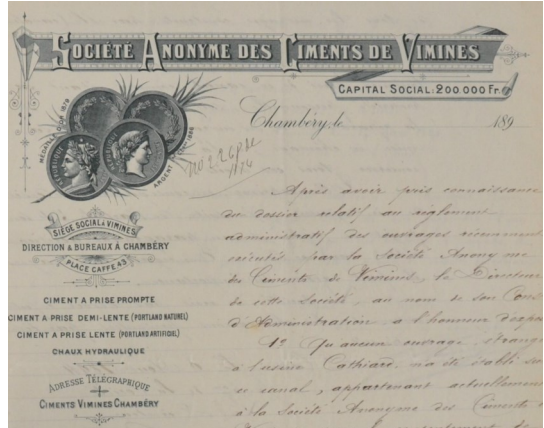 SOCIÉTÉ ANONYME DES CIMENTS DE VIMINES
CAPITAL SOCIAL: 200.000 Fr.
Chambéry, le 189
MÉDAILLE D'OR 1879
ARGENT
SIÈGE SOCIAL À VIMINES
DIRECTION & BUREAUX À CHAMBÉRY
PLACE CAFFE 43
CIMENT A PRISE PROMPTE
CIMENT A PRISE DEMI-LENTE (PORTLAND NATUREL)
CIMENT A PRISE LENTE (PORTLAND ARTIFICIEL)
CHAUX HYDRAULIQUE
ADRESSE TÉLÉGRAPHIQUE
CIMENTS VIMINES CHAMBÉRY
Après avoir pris connaissance
du dossier relatif au règlement
administratif des ouvrages récemment
exécutés par la Société Anonyme
des Ciments de Vimines, le Directeur
de cette Société, au nom de son Cons
d'Administration, a l'honneur d'expo
1° Qu'aucun ouvrage, étrang
à l'usine Cathiard, n'a été établi su
ce canal, appartenant actuellement
à la Société Anonyme des Ciments d